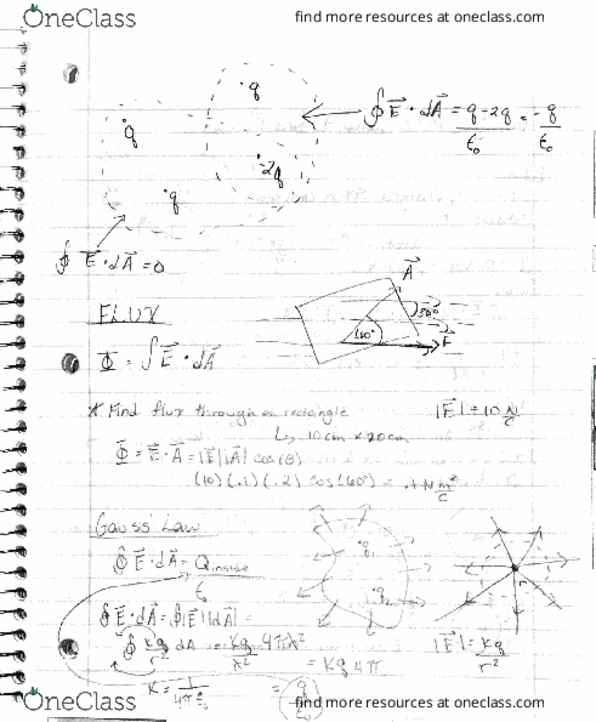 OneClass
find more resources at oneclass.com
q
∮ E⃗ · dA⃗ = q - 2q / ε₀ = -q / ε₀
q
-2q
q
∮ E⃗ · dA⃗ = 0
A⃗
FLUX
60°
E
Φ = ∫ E⃗ · dA⃗
* Find flux through a rectangle
|E⃗| = 10 N/C
↳ 10cm x 20cm
Φ = E⃗ · A⃗ = |E⃗||A⃗| cos(θ)
(10)(.1)(.2) cos(60°) = .1 N m²/C
Gauss' Law
∮ E⃗ · dA⃗ = Q inside / ε₀
r
∮ E⃗ · dA⃗ = ∮ |E⃗||dA⃗| =
∮ kq/r² dA = kq/r² 4πr²
= kq 4π
|E⃗| = kq/r²
k = 1/4πε₀
= q/ε₀
OneClass
find more resources at oneclass.com